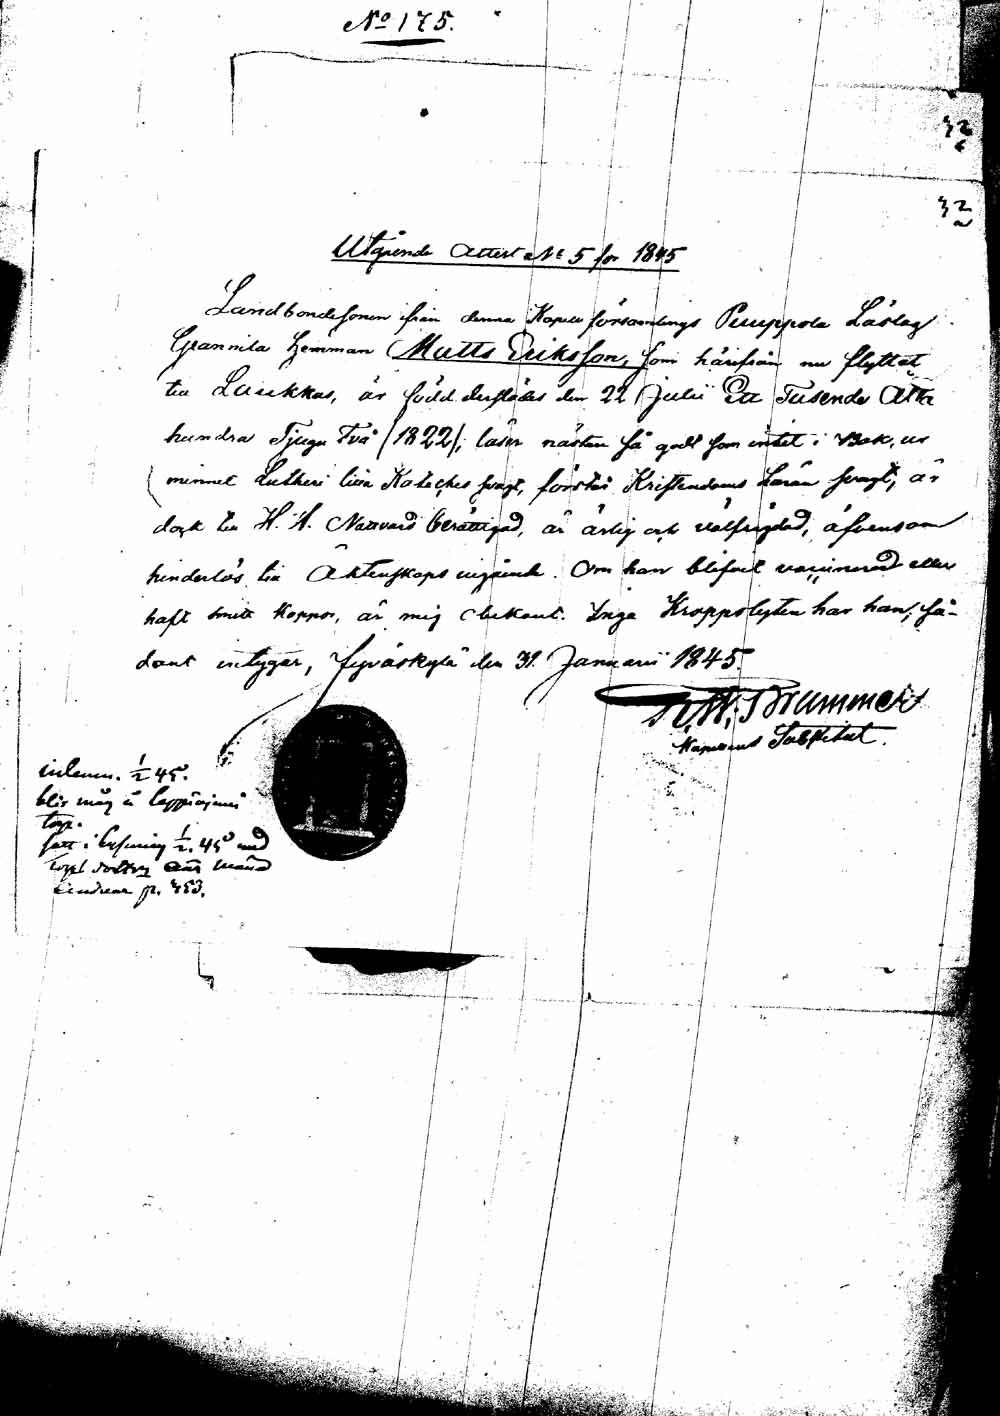 No 175.
32
32
Utgående Attest No 5 för 1845
Landbondesonen ifrån denna Kapell församlings Puuppola Läslag
Grannila hemman Matts Eriksson, som härifrån nu flyttat
till Laukkas, är född derstädes den 22 Julii Ett Tusende Åtta
hundra Tjugu Två /1822/, läser nästan så godt som intet i Bok, ur
minnet Lutheri lilla Kateches svagt, förstår Kristendoms Läran svagt, är
dock till H. H. Nattvard berättigad, är ärlig och välfrägdad, äfvensom
hinderlös till Äktenskaps ingående. Om han blifvit vaccinerad eller
haft smitt koppor, är mig obekant. Inga Kroppslyten har han, så-
dant intygar, Jyväskylä den 31 Januarii 1845.
Brummer
Kapellans
1/2 45.
blir måg å
torp.
1/2 45 med
p. 453.